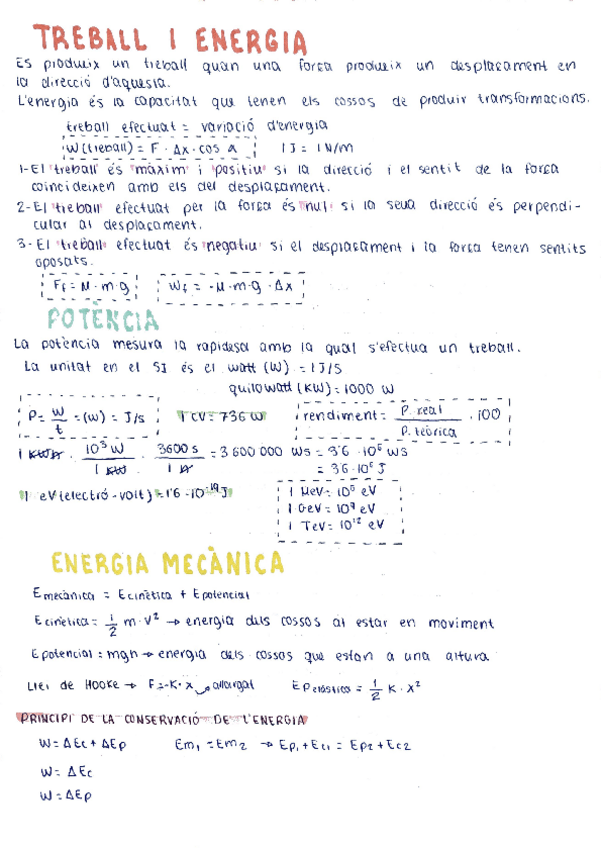 TREBALL I ENERGIA
Es produeix un treball quan una força produeix un desplaçament en
la direcció d'aquesta.
L'energia és la capacitat que tenen els cossos de produir transformacions.
treball efectuat = variació d'energia
W(treball) = F · Δx · cos α 1J = 1N/m
1-El "treball" és "màxim" i "positiu" si la direcció i el sentit de la força
coincideixen amb els del desplaçament.
2-El "treball" efectuat per la força és "nul" si la seua direcció és perpendi-
cular al desplaçament.
3-El "treball" efectuat és "negatiu" si el desplaçament i la força tenen sentits
oposats.
Ff = μ · m · g Wf = -μ · m · g · Δx
POTÈNCIA
La potència mesura la rapidesa amb la qual s'efectua un treball.
La unitat en el SI és el watt (W) = 1J/S
quilowatt (KW) = 1000 W
P = W/t = (W) = J/s 1 CV = 736 W rendiment = P. real / P. teòrica · 100
1 KWh · 10³ W / 1 KW · 3600 s / 1 h = 3 600 000 Ws = 3'6 · 10⁶ WS
= 3'6 · 10⁶ J
1 eV (electró-volt) = 1'6 · 10⁻¹⁹ J
1 MeV = 10⁶ eV
1 GeV = 10⁹ eV
1 TeV = 10¹² eV
ENERGIA MECÀNICA
E mecànica = E cinètica + E potencial
E cinètica = 1/2 m · v² → energia dels cossos al estar en moviment
E potencial = mgh → energia dels cossos que estan a una altura
Llei de HOOKE → F = -K · x allargat E p elàstica = 1/2 K · x²
PRINCIPI DE LA CONSERVACIÓ DE L'ENERGIA
W = ΔEc + ΔEp Em₁ = Em₂ → Ep₁ + Ec₁ = Ep₂ + Ec₂
W = ΔEc
W = ΔEp